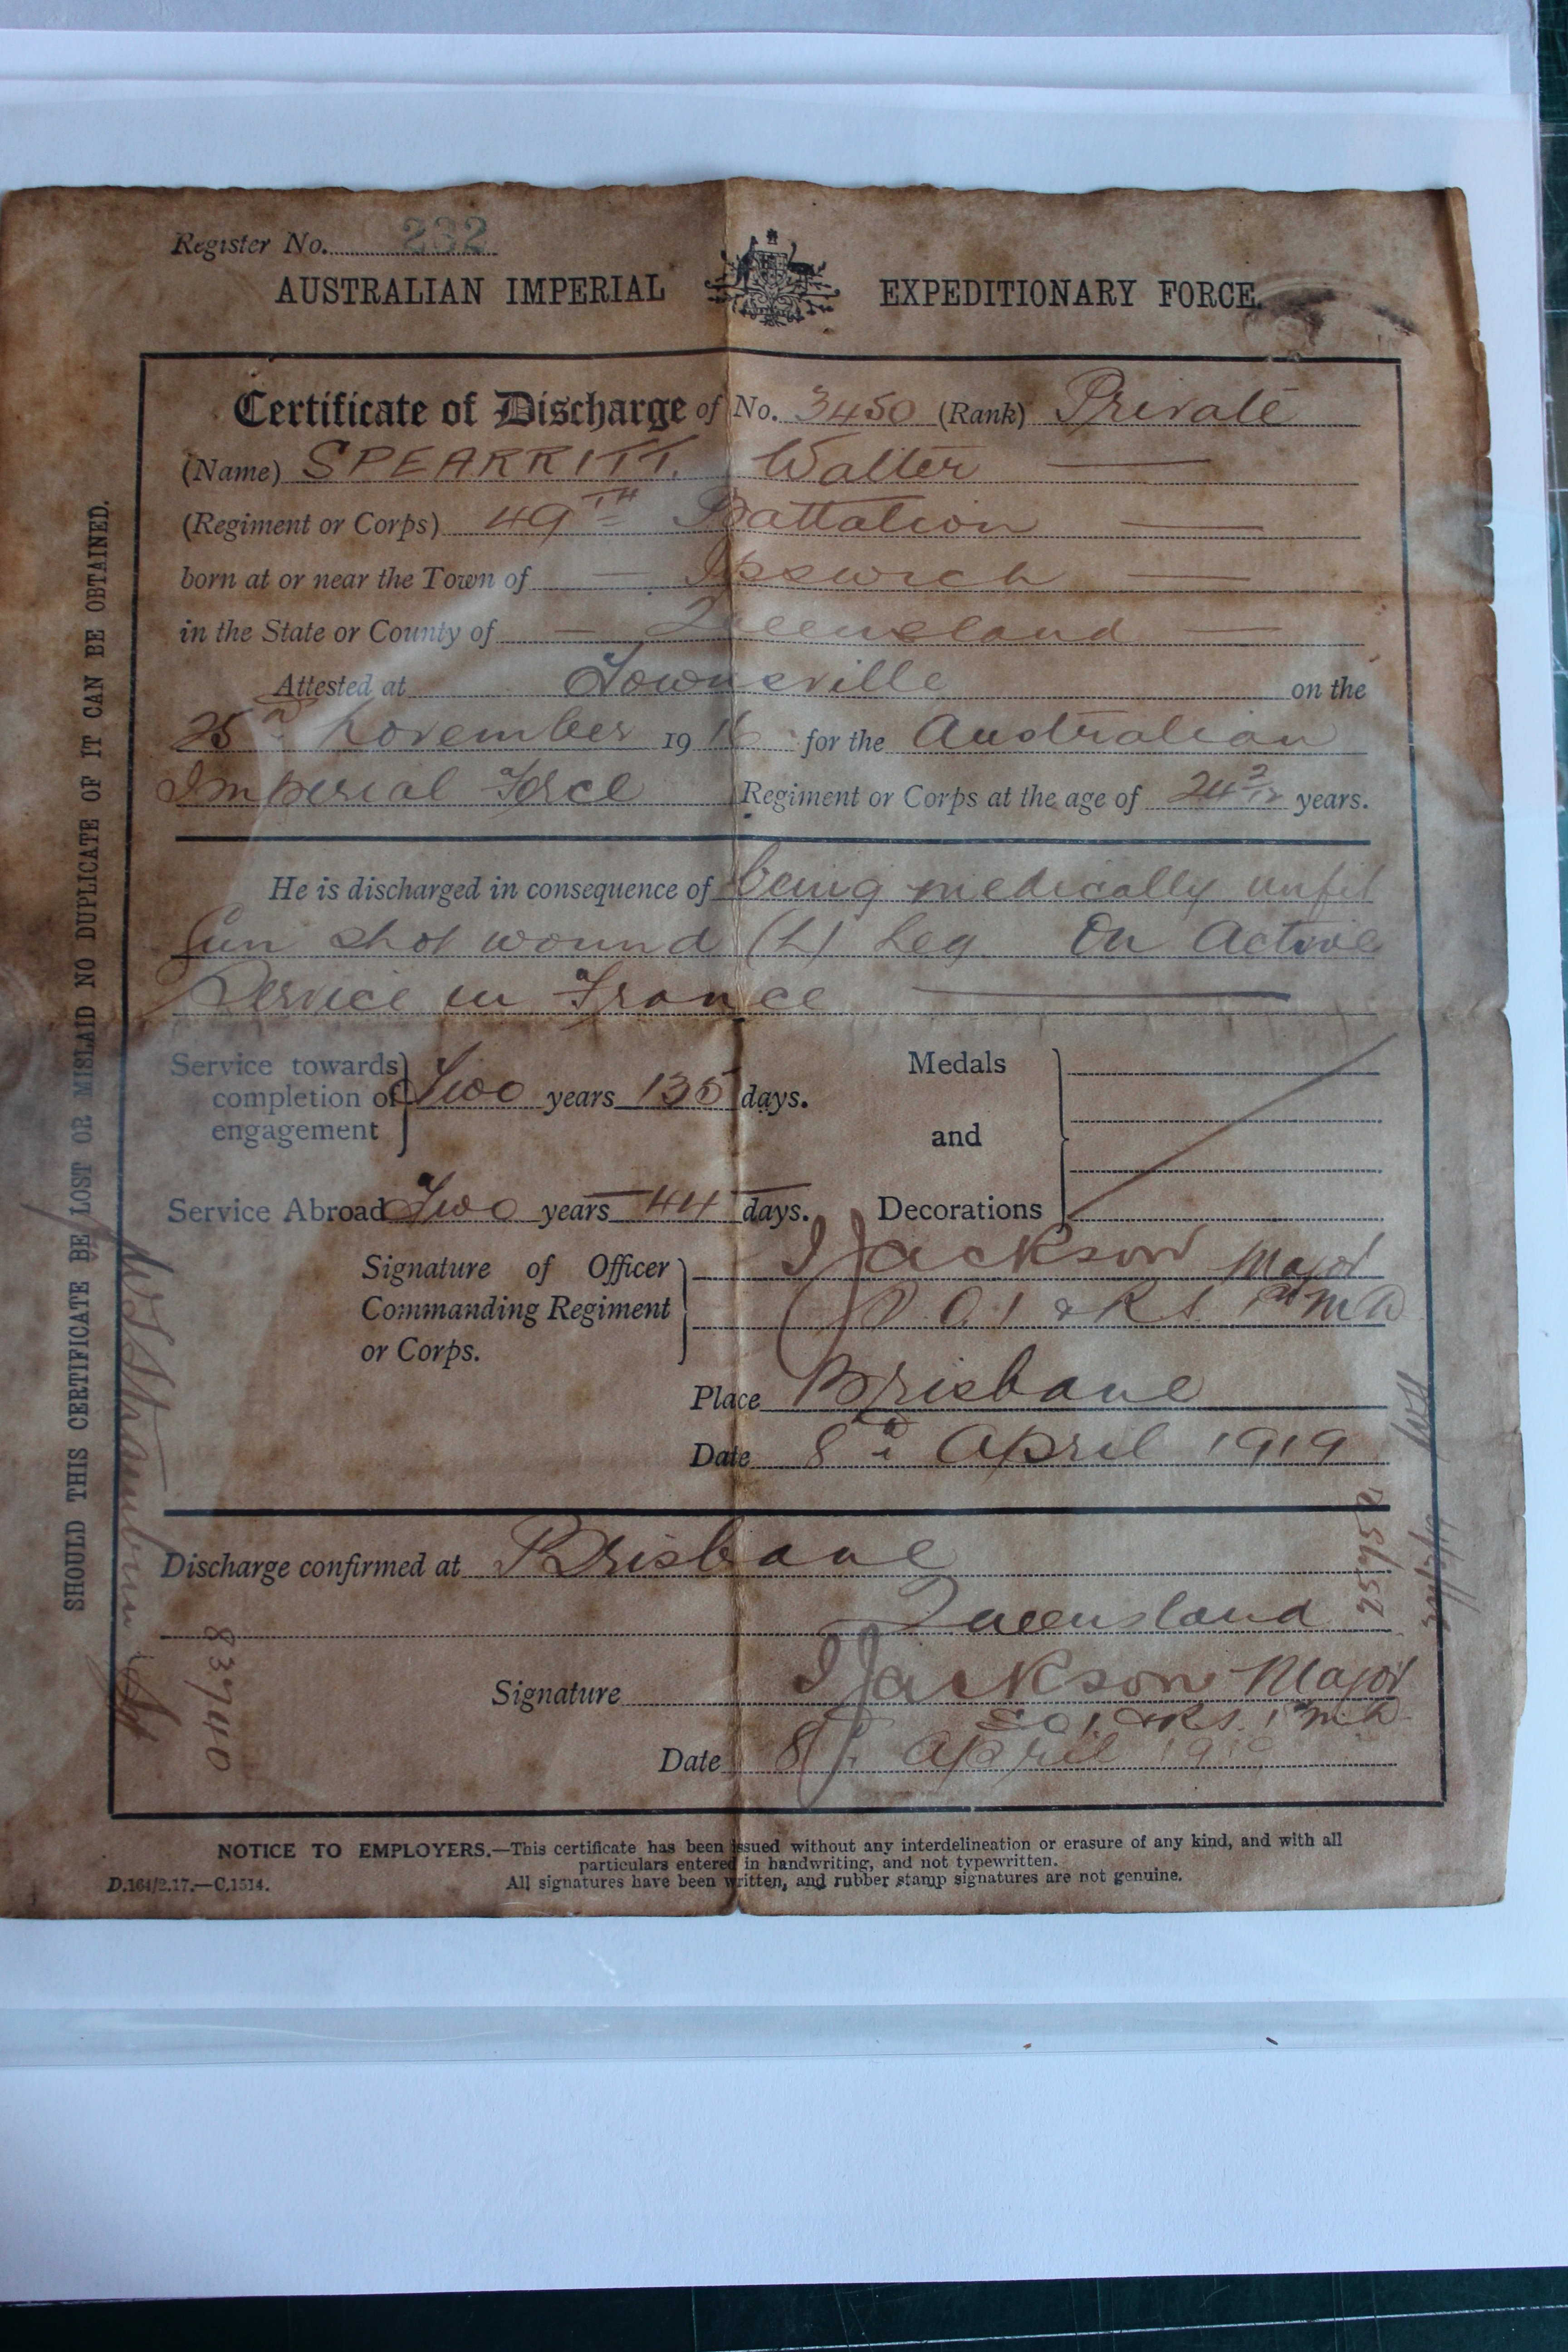 Register No. 232
AUSTRALIAN IMPERIAL EXPEDITIONARY FORCE.
Certificate of Discharge of No. 3450 (Rank) Private
(Name) SPEARRITT. Walter
(Regiment or Corps) 49TH Battalion
born at or near the Town of Ipswich
in the State or County of Queensland
Attested at Townsville on the
25 November 1916 for the Australian
Imperial Force Regiment or Corps at the age of 24 2/12 years.
He is discharged in consequence of being medically unfit
Gun shot wound (L) Leg On Active
Service in France
Service towards completion of engagement Two years 135 days.
Service Abroad Two years 44 days.
Medals and Decorations
Signature of Officer Commanding Regiment or Corps. J Jackson Major
& R S. 1st M D
Place Brisbane
Date 8 April 1919
Discharge confirmed at Brisbane
Queensland
Signature J Jackson Major
S O I. & R S. 1st M.D.
Date 8 April 1919
NOTICE TO EMPLOYERS.—This certificate has been issued without any interdelineation or erasure of any kind, and with all
particulars entered in handwriting, and not typewritten.
D.164/2.17.—C.1514. All signatures have been written, and rubber stamp signatures are not genuine.
SHOULD THIS CERTIFICATE BE LOST OR MISLAID NO DUPLICATE OF IT CAN BE OBTAINED.
83740